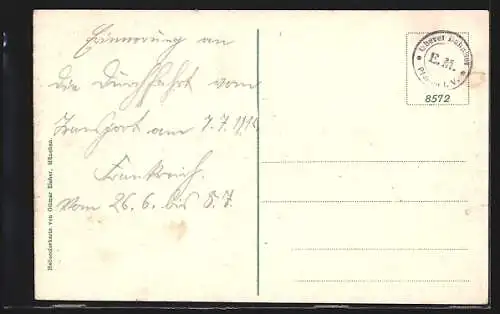 Erinnerung an
die Durchfahrt vom
Transport am 7.7.1915
Frankreich.
Vom 26.6. bis 8.7.
Heliocolorkarte von Ottmar Zieher, München.
E. M.
8572